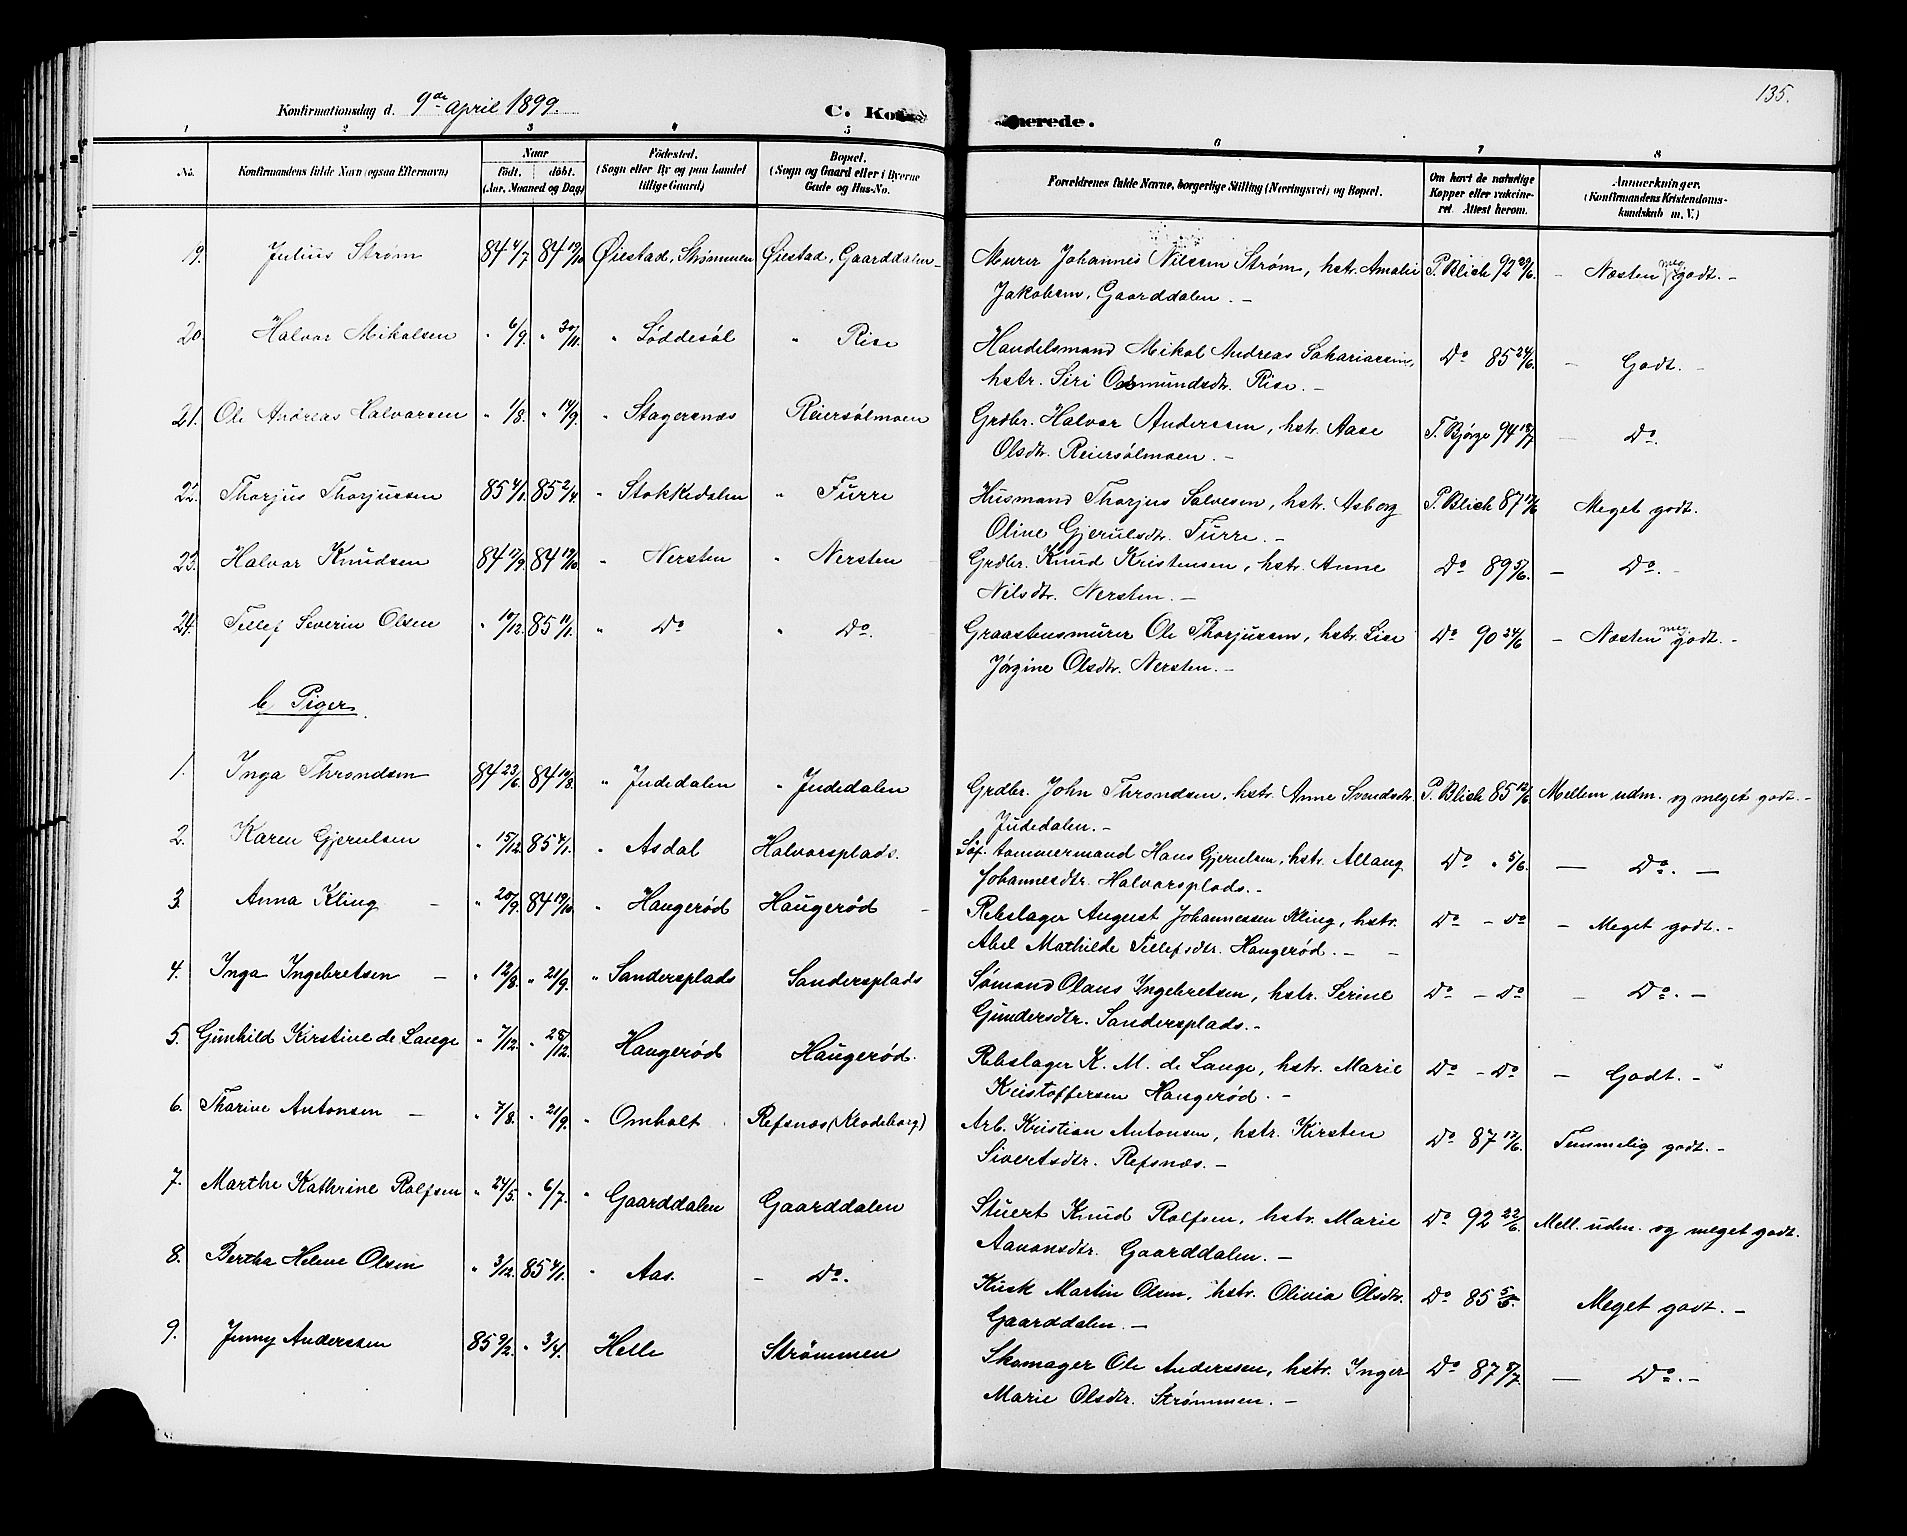 135.
Konfirmationsdag d. 9de april 1899.
C. Kon
merede.
1 2 3 4 5 6 7 8
No.
Konfirmandens fulde Navn (ogsaa Efternavn)
Naar
födt. döbt.
(Aar, Maaned og Dag)
Födested.
(Sogn eller By og paa Landet
tillige Gaard)
Bopæl.
(Sogn og Gaard eller i Byerne
Gade og Hus-No.
Forældrenes fulde Navne, borgerlige Stilling (Næringsvei) og Bopæl.
Om havt de naturlige
Kopper eller vakcine-
ret. Attest herom.
Anmerkninger.
(Konfirmandens Kristendoms-
kundskab m. V.)
19. Julius Strøm 84 4/7 84 19/10 Øiestad, Strømmen Øiestad, Gaarddalen- Murer Johannes Nilssen Strøm, hstr. Amalie P. Blich 92 29/6. - Næsten meg. godt. -
Jakobsen, Gaarddalen. -
20. Halvor Mikalsen " 6/9. " 30/11. " Løddesøl " Rise Handelsmand Mikal Andreas Sakariassen, Do 85 24/6. - Godt. -
hstr. Siri Osmundsdtr. Rise. -
21. Ole Andreas Halvorsen " 1/8. " 14/9. " Stagersnæs Reiersølmoen Grdbr. Halvor Anderssen, hstr. Aase T. Bjørge 94 18/7 - Do.
Olsdtr. Reiersølmoen. -
22. Thorjus Thorjussen 85 4/1. 85 2/4. " Stokkedalen " Furre Husmand Thorjus Salvesen, hstr. Asborg P. Blich 87 17/6 Meget godt.
Oline Gjerulsdtr. Furre. -
23. Halvor Knudsen 84 17/9. 84 19/10. " Nersten " Nersten Grdbr. Knud Kristensen, hstr. Anne Do 89 5/6. - Do. -
Nilsdtr. Nersten. -
24. Tellef Severin Olsen " 10/12. 85 11/1. " Do " Do. Graastensmurer Ole Thorjussen, hstr. Lise Do 90 24/6 - Næsten meg. godt. -
Jørgine Olsdtr. Nersten. -
b Piger.
1. Inga Throndsen 84 23/6. 84 10/8. " Judedalen " Judedalen Grdbr. John Throndsen, hstr. Anne Svendsdtr. P. Blich 85 12/6 Mellem udm. og meget godt. -
Judedalen. -
2. Karen Gjerulsen " 15/12. 85 4/1. " Asdal Halvorsplads. Søf. tømmermand Hans Gjerulsen, hstr. Allaug Do " 5/6. - Do. -
Johannesdtr. Halvorsplads. -
3. Anna Kling - " 20/9. 84 19/10 " Haugerød Haugerød - Rebslager August Johannessen Kling, hstr. Do - Do - Meget godt. -
Abel Mathilde Tellefsdtr. Haugerød. - -
4. Inga Ingebretsen - " 12/8. " 21/9. " Sandersplads Sandersplads Sømand Olaus Ingebretsen, hstr. Serine Do - Do - Do. -
Gundersdtr. Sandersplads. -
5. Gunhild Kirstine de Lange " 7/12. " 28/12. Haugerød Haugerød. Rebslager K. M. de Lange, hstr. Marie Do - Do - Godt. - "
Kristoffersen Haugerød. -
6. Tharine Antonsen - " 7/8. " 21/9. " Omholt Refsnæs (Klodeborg) Arb. Kristian Antonsen, hstr. Kirsten Do 87 17/6. Temmelig godt. -
Sivertsdtr. Refsnæs. -
7. Marthe Kathrine Rolfsen " 24/5. " 6/7. " Gaarddalen Gaarddalen Stuert Knud Rolfsen, hstr. Marie Do 92 22/6. Mell. udm. og meget godt.
Aanonsdtr. Gaarddalen. -
8. Bertha Helene Olsen " 3/12. 85 4/1. " Aas. - Do. Kusk Martin Olsen, hstr. Olivia Olsdtr. Do 85 Meget godt. -
Gaarddalen. -
9. Jenny Anderssen 85 9/2. " 3/4. Helle Strømmen Skomager Ole Anderssen, hstr. Inger Do 87 5/7. - Do. -
Marie Olsdtr. Strømmen. -